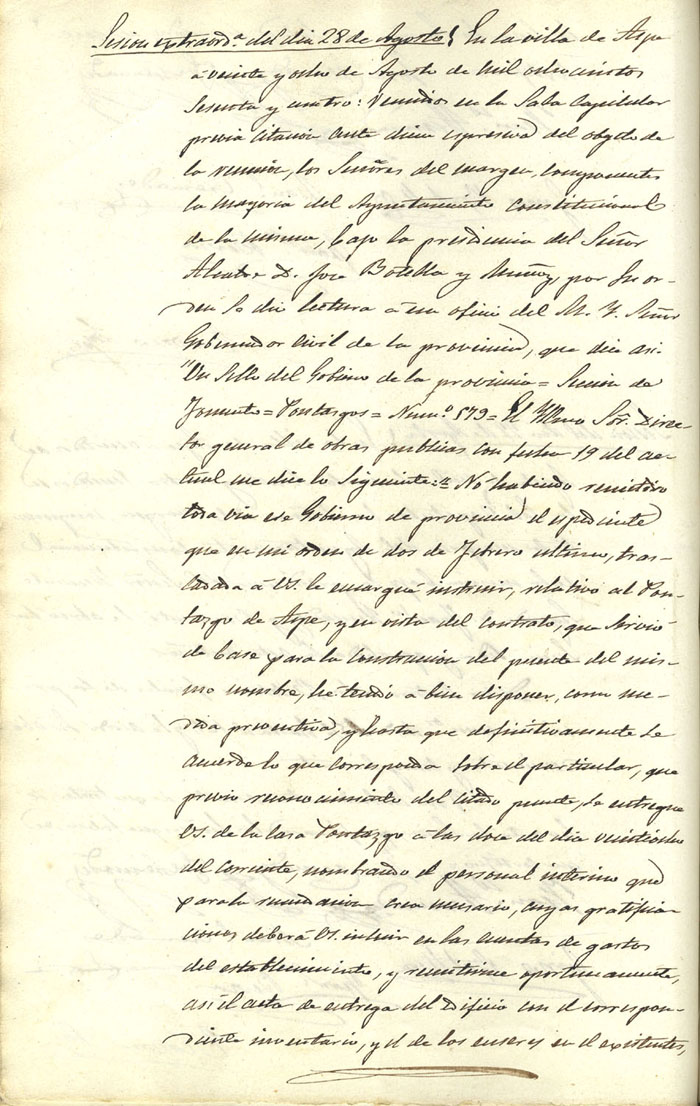 Sesion extraord.ª del dia 28 de Agosto. En la villa de Aspe
á veinte y ocho de Agosto de mil ochocientos
sesenta y cuatro: reunidos en la Sala Capitular
previa citacion ante diem espresiva del objeto de
la reunion, los Señores del margen, componentes
la mayoria del Ayuntamiento constitucional
de la misma, bajo la presidencia del Señor
Alcalde D. José Botella y Muñoz, por su or-
den se dio lectura á un oficio del M. Y. Señor
Gobernador Civil de la provincia, que dice asi.
"Un Sello del Gobierno de la provincia = Seccion de
Fomento = Pontazgos = Num.º 579 = El Yllmo Sor. Direc-
tor general de obras publicas con fecha 19 del ac-
tual me dice lo siguiente: = No habiendo remitido
toda via ese Gobierno de provincia el espediente
que en mi orden de dos de Febrero ultimo, tras-
ladada á VS. le encargué instruir, relativo al Pon-
tazgo de Aspe, y en vista del contrato, que sirvió
de base para la construcion del puente del mis-
mo nombre, he tenido á bien disponer, como me-
dida preventiva, y hasta que definitivamente se
acuerde lo que corresponda sobre el particular, que
previo reconocimiento del citado puente, se entregue
VS. de la casa Pontazgo á las doce del dia veintiocho
del corriente, nombrando el personal interino que
para la recaudacion crea necesario, cuyas gratifica-
ciones deberá VS. incluir en las cuentas de gastos
del establecimiento, y remitirme oportunamente,
asi el acta de entrega del edificio con el correspon-
diente inventario, y el de los enseres en el existentes,